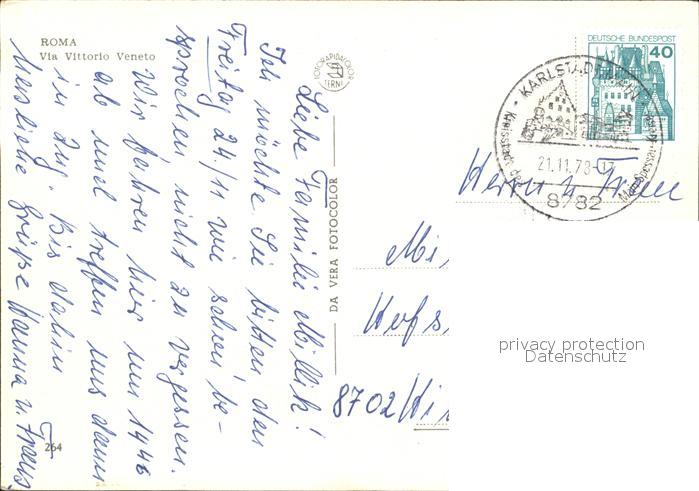 ROMA
Via Vittorio Veneto
Liebe Familie Millich!
Ich möchte Sie bitten den
Freitag 24/11 wie schon be-
sprochen nicht zu vergessen.
Wir fahren hier um 1446
ab und treffen uns dann
im Zug. Bis dahin
herzliche Grüße Hanna u. Franz
264
FOTORAPIDACOLOR
TERNI
DA VERA FOTOCOLOR
DEUTSCHE BUNDESPOST
40
KARLSTADT, MAIN
Kreisstadt des
21.11.78-17
8782
Herrn u. Frau
Mi
8702
privacy protection
Datenschutz